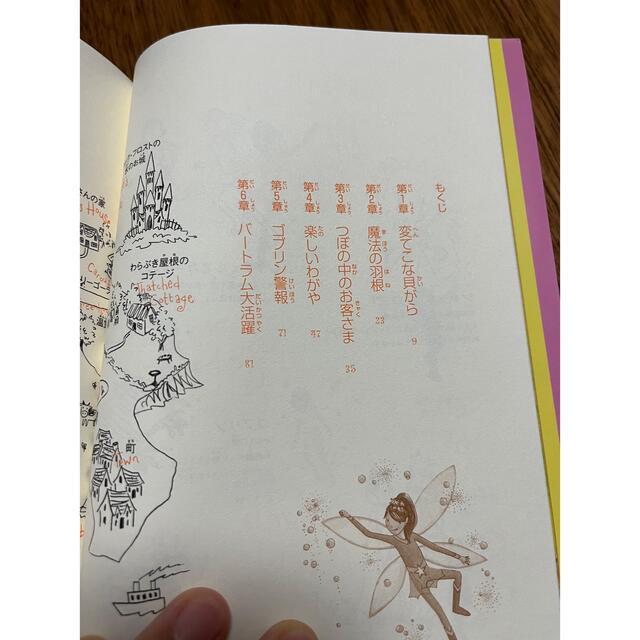 もくじ
第1章 変てこな貝がら 9
第2章 魔法の羽根 23
第3章 つぼの中のお客さま 35
第4章 楽しいわがや 47
第5章 ゴブリン警報 71
第6章 バートラム大活躍 81
フロストの
のお城
さんの家
House
わらぶき屋根の
コテージ
Thatched
Cottage
町
Town